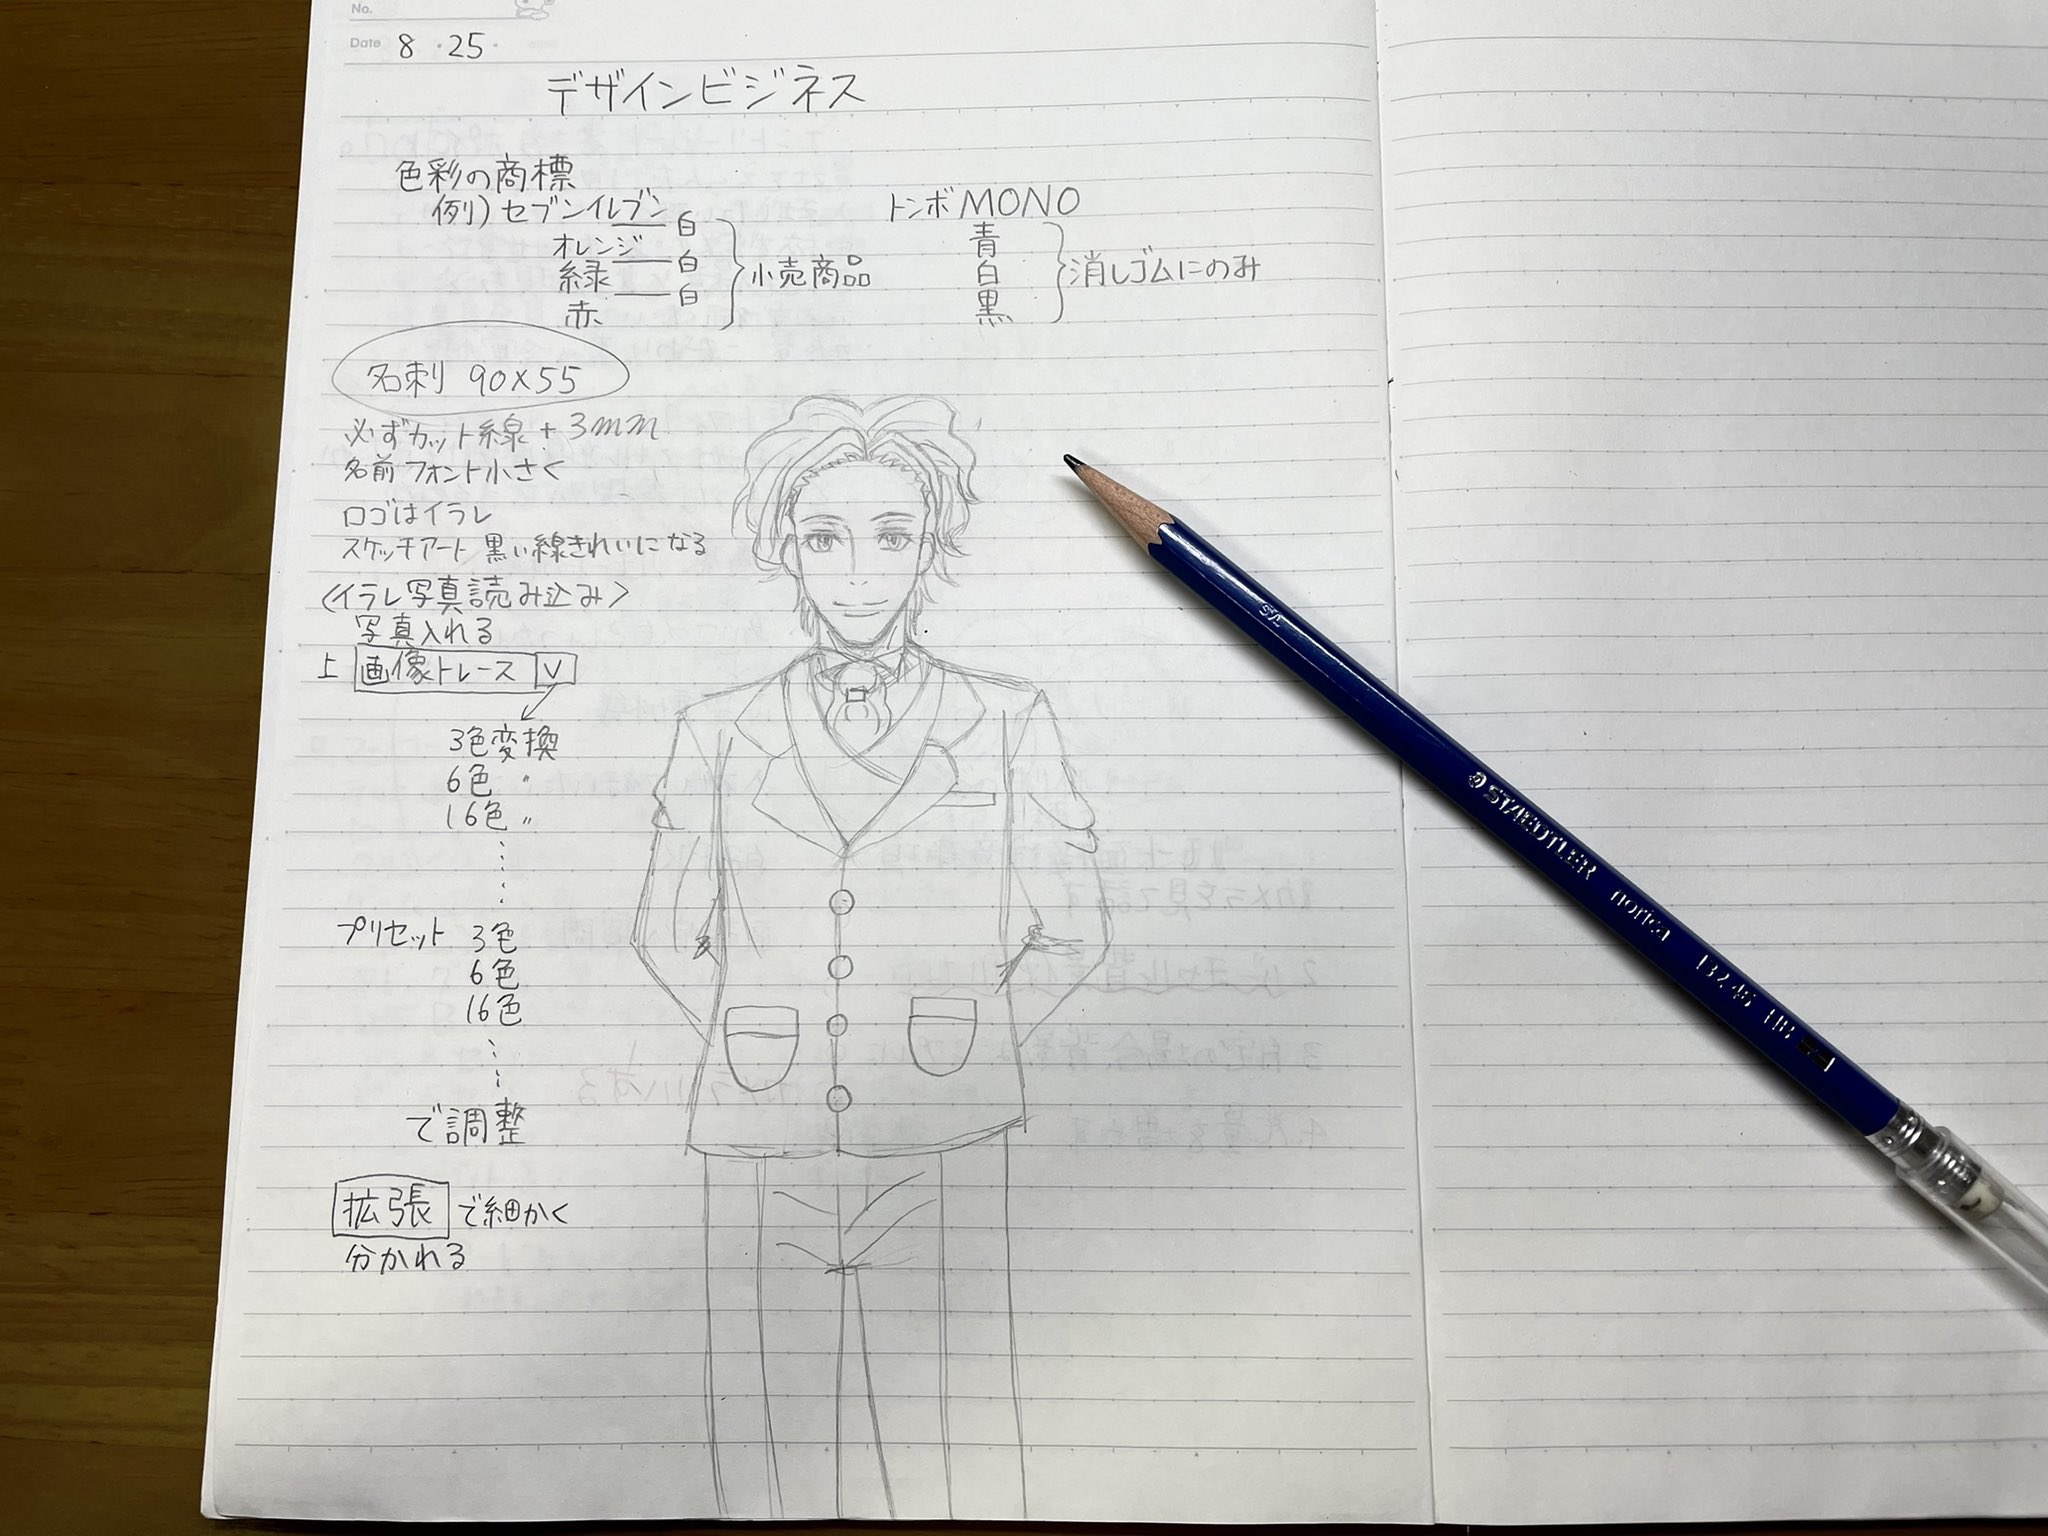 No.
Date 8・25・
デザインビジネス
色彩の商標
例)セブンイレブン
白
オレンジ
白
緑
白
赤
小売商品
トンボMONO
青
白
黒
消しゴムにのみ
名刺 90×55
必ずカット線+3mm
名前フォント小さく
ロゴはイラレ
スケッチアート 黒い線きれいになる
〈イラレ写真読み込み〉
写真入れる
上 画像トレース V
3色変換
6色 〃
16色 〃
プリセット 3色
6色
16色
で調整
拡張 で細かく
分かれる
STAEDTLER norica 132 46 HB